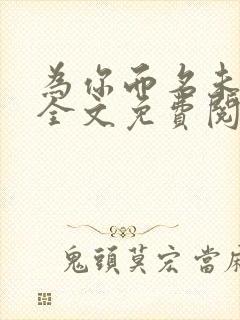 為你而名未
全文免費閱
鬼頭莫宏當麻